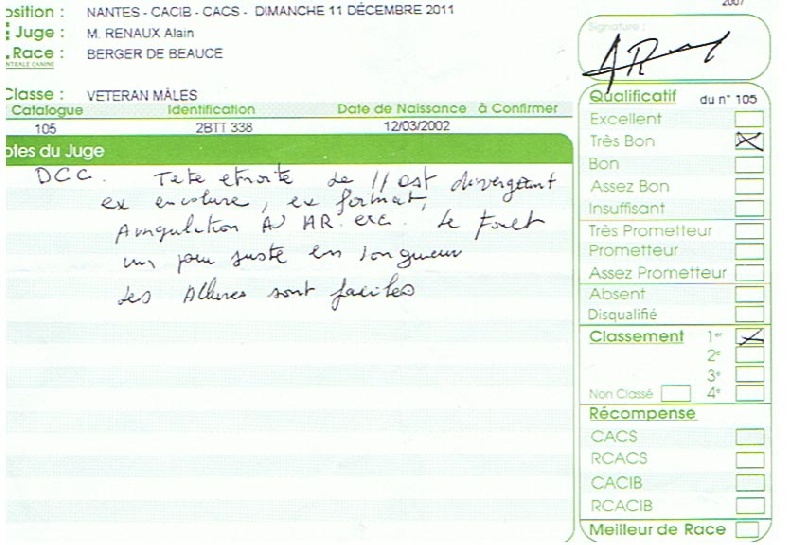 osition : NANTES - CACIB - CACS - DIMANCHE 11 DÉCEMBRE 2011
2007
Juge : M. RENAUX Alain
Race : BERGER DE BEAUCE
NTRALE CANINE
Classe : VETERAN MÂLES
Catalogue Identification Date de Naissance à Confirmer
105 2BTT 338 12/03/2002
otes du Juge
DCC. Tete etroite de // est divergeant
ex encolure, ex format,
Angulation AV AR. exc. Le fouet
un peu juste en longueur
Les Allures sont faciles
Signature :
Qualificatif du n° 105
Excellent
Très Bon
Bon
Assez Bon
Insuffisant
Très Prometteur
Prometteur
Assez Prometteur
Absent
Disqualifié
Classement 1er
2e
3e
Non Classé 4e
Récompense
CACS
RCACS
CACIB
RCACIB
Meilleur de Race